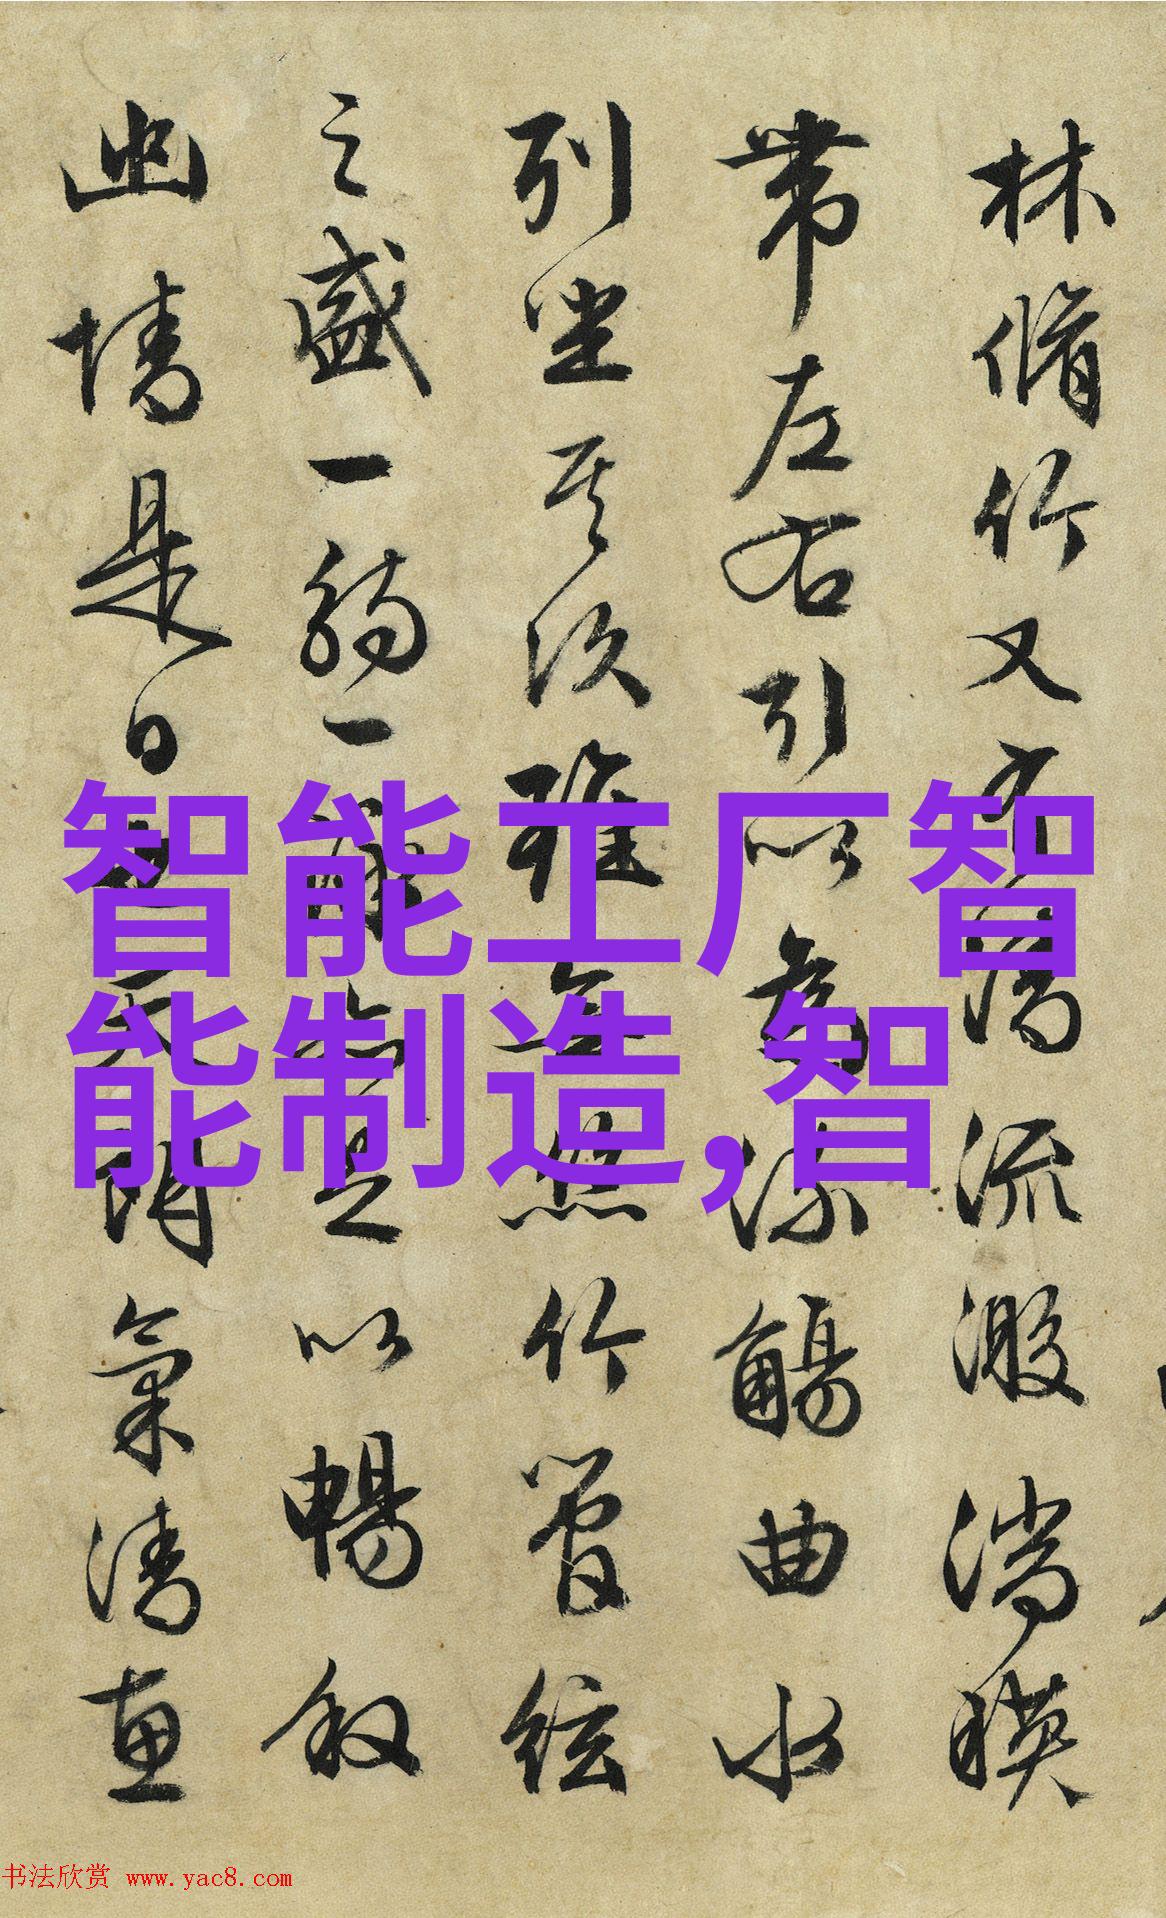 林脩竹又有清流激湍暎
帶左右引以為流觴曲水
列坐其次雖無絲竹管弦
之盛一觴一詠亦足以暢敘
幽情是日也天朗氣清惠
智能工厂智
能制造,智
书法欣赏 www.yac8.com